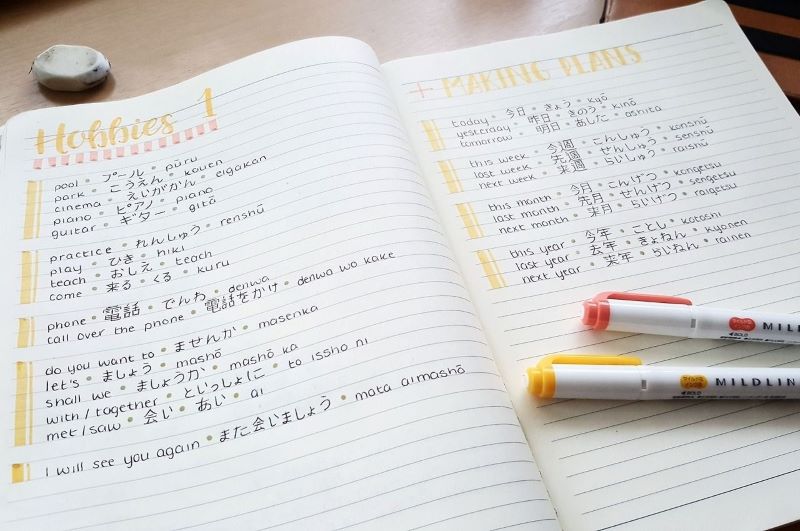 Hobbies 1
pool • プール • pūru
park • こうえん • kouen
cinema • えいがかん • eigakan
piano • ピアノ • piano
guitar • ギター • gitā
practice • れんしゅう • renshū
play • ひき • hiki
teach • おしえ • teach
come • 来る • くる • kuru
phone • 電話 • でんわ • denwa
call over the phone • 電話をかけ • denwa wo kake
do you want to • ませんか • masenka
let's • ましょう • mashō
shall we • ましょうか • mashō ka
with/together • といっしょに • to issho ni
met/saw • 会い • あい • ai
I will see you again • また会いましょう • mata aimashō
+ MAKING PLANS
today • 今日 • きょう • kyō
yesterday • 昨日 • きのう • kinō
tomorrow • 明日 • あした • ashita
this week • 今週 • こんしゅう • konshū
last week • 先週 • せんしゅう • senshū
next week • 来週 • らいしゅう • raishū
this month • 今月 • こんげつ • kongetsu
last month • 先月 • せんげつ • sengetsu
next month • 来月 • らいげつ • raigetsu
this year • 今年 • ことし • kotoshi
last year • 去年 • きょねん • kyonen
next year • 来年 • らいねん • rainen
MILDLIN
MILDLIN